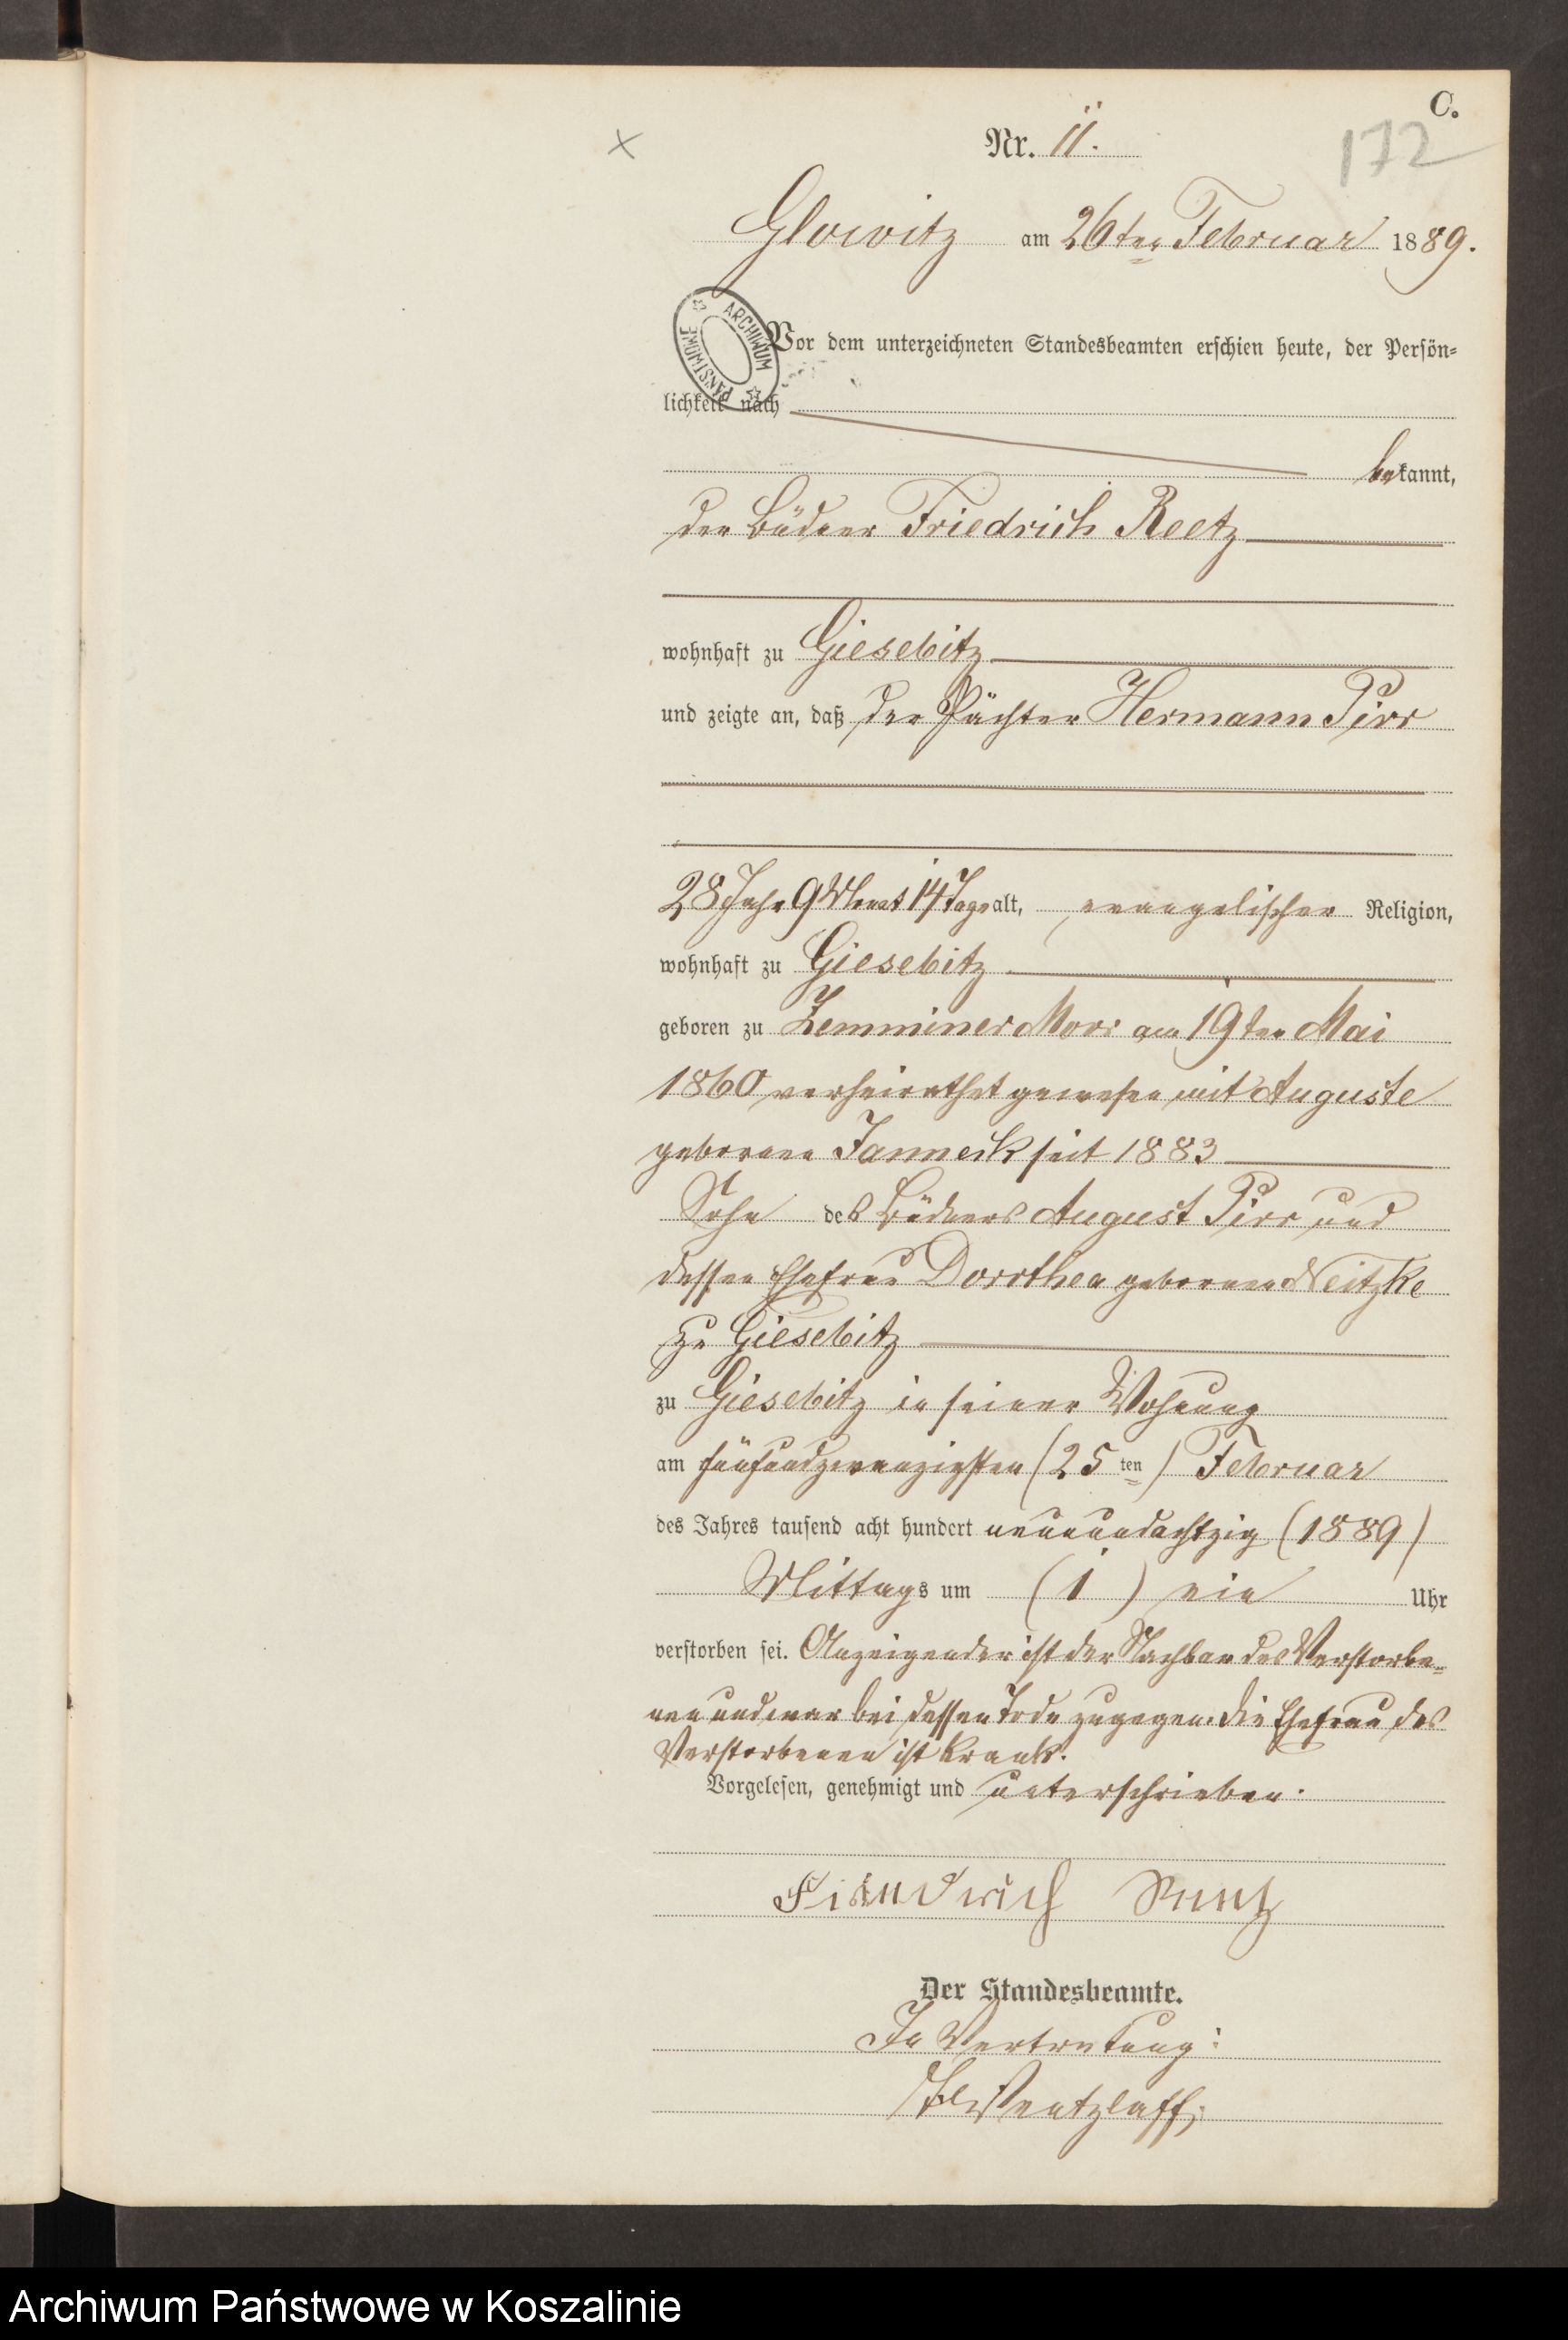 C.
172
Nr. 11.
Glowitz am 26ten Februar 1889.
ARCHIWUM PAŃSTWOWE
Vor dem unterzeichneten Standesbeamten erschien heute, der Persön=
lichkeit nach
bekannt,
der Büdner Friedrich Reetz
wohnhaft zu Giesebitz
und zeigte an, daß der Pächter Hermann Pirr
28 Jahr 9 Monat 14 Tage alt, evangelischer Religion,
wohnhaft zu Giesebitz
geboren zu Zemminer Moor am 19ten Mai
1860 verheirathet gewesen mit Auguste
geborene Janneck seit 1883
Sohn des Büdners August Pirr und
dessen Ehefrau Dorothea geborenen Neitzke
zu Giesebitz
zu Giesebitz in seiner Wohnung
am fünfundzwanzigsten (25ten) Februar
des Jahres tausend acht hundert neunundachtzig (1889)
Mittags um (1) ein Uhr
verstorben sei. Anzeigender ist der Nachbar des Verstorbe=
nen und war bei dessen Tode zugegen. Die Ehefrau des
Verstorbenen ist krank.
Vorgelesen, genehmigt und unterschrieben.
Friedrich Reetz
Der Standesbeamte.
In Vertretung:
Wentzlaff.
Archiwum Państwowe w Koszalinie